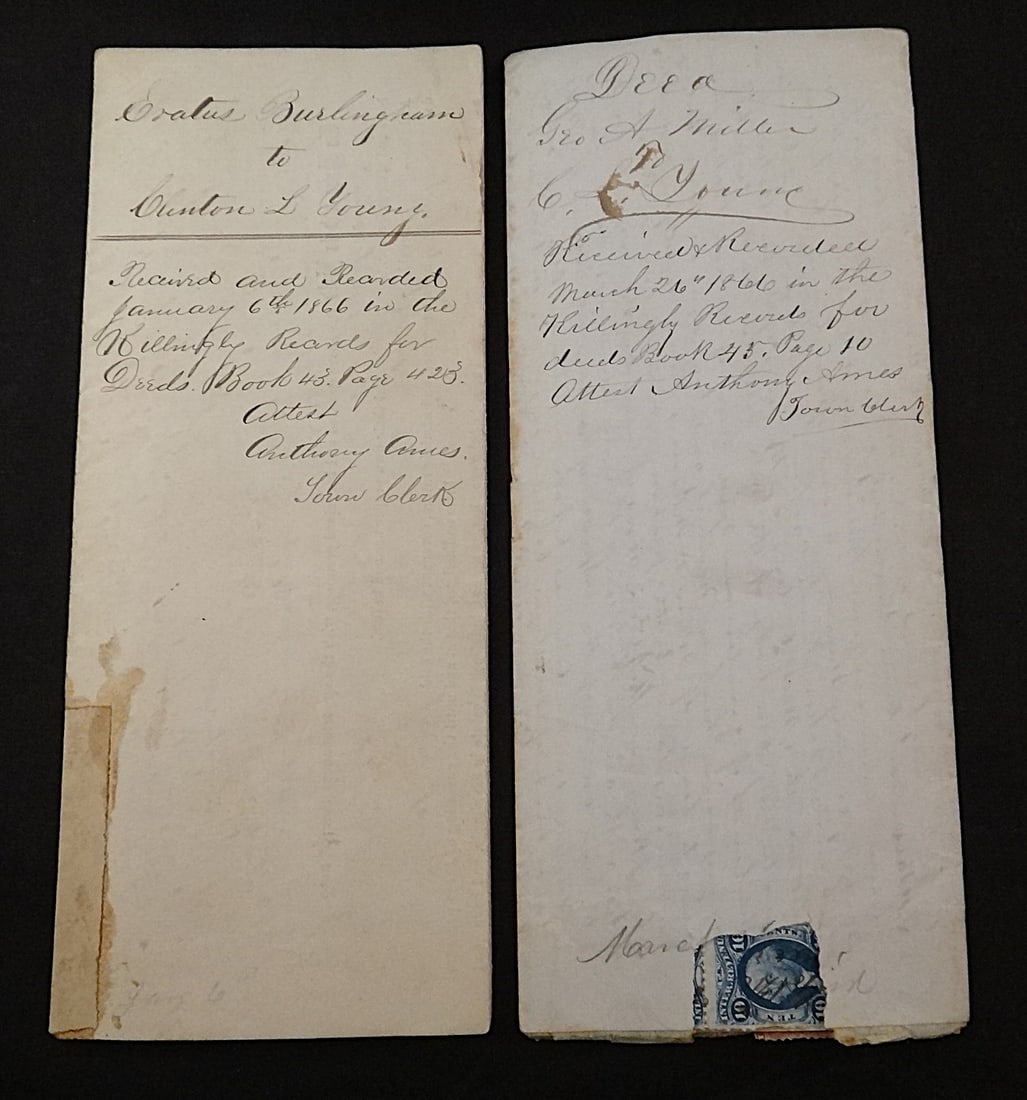 Eratus Burlingham
to
Clinton L Young.
Received and Recorded
January 6th 1866 in the
Killingly Records for
Deeds. Book 43. Page 423.
Attest
Anthony Ames.
Town Clerk
Jany 6
Deed
Geo A Miller
To
C. L. Young
Received & Recorded
March 26" 1866 in the
Killingly Records for
deeds Book 45. Page 10
Attest Anthony Ames
Town Clerk
March
10
CENTS
U.S. INTER. REV.
10
TEN
10